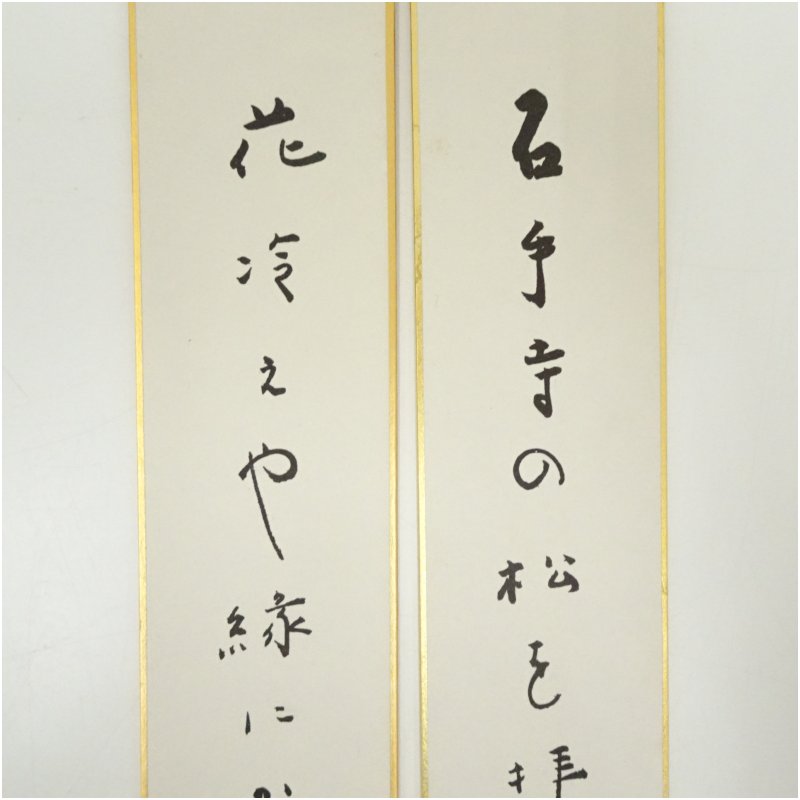 石手寺の松を拝
花冷えや縁に